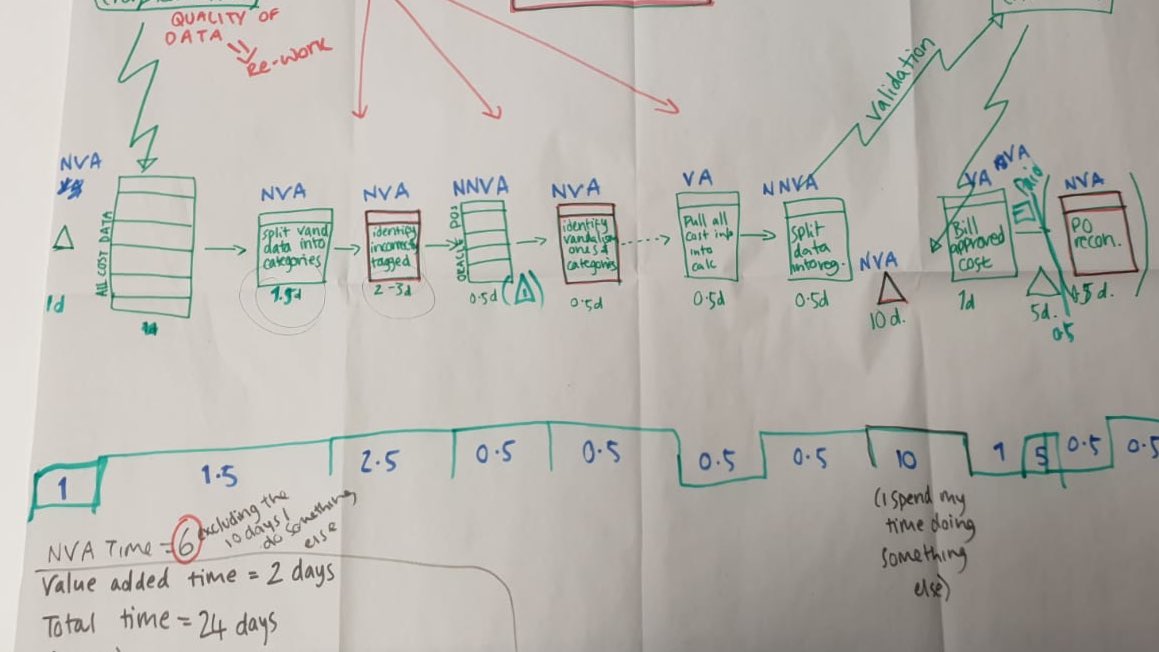 QUALITY OF
DATA
Re-work
Validation
NVA
1d
ALL COST DATA
NVA
split vand
data into
categories
1.5d
NVA
identify
incorrectly
tagged
2-3d
NNVA
ORACLE POs
0.5d
NVA
identify
vandalism
ones &
categories
0.5d
VA
Pull all
cost info
into
calc
0.5d
NNVA
Split
data
into reg.
0.5d
NVA
10 d.
VA
Bill
approved
cost
1d
NVA
Paid
5d.
0.5
NVA
PO
recon.
0.5d.
1
1.5
2.5
0.5
0.5
0.5
0.5
10
1
5
0.5
0.5
(I spend my
time doing
something
else)
NVA Time = 6
excluding the
10 days I
do something
else
Value added time = 2 days
Total time = 24 days